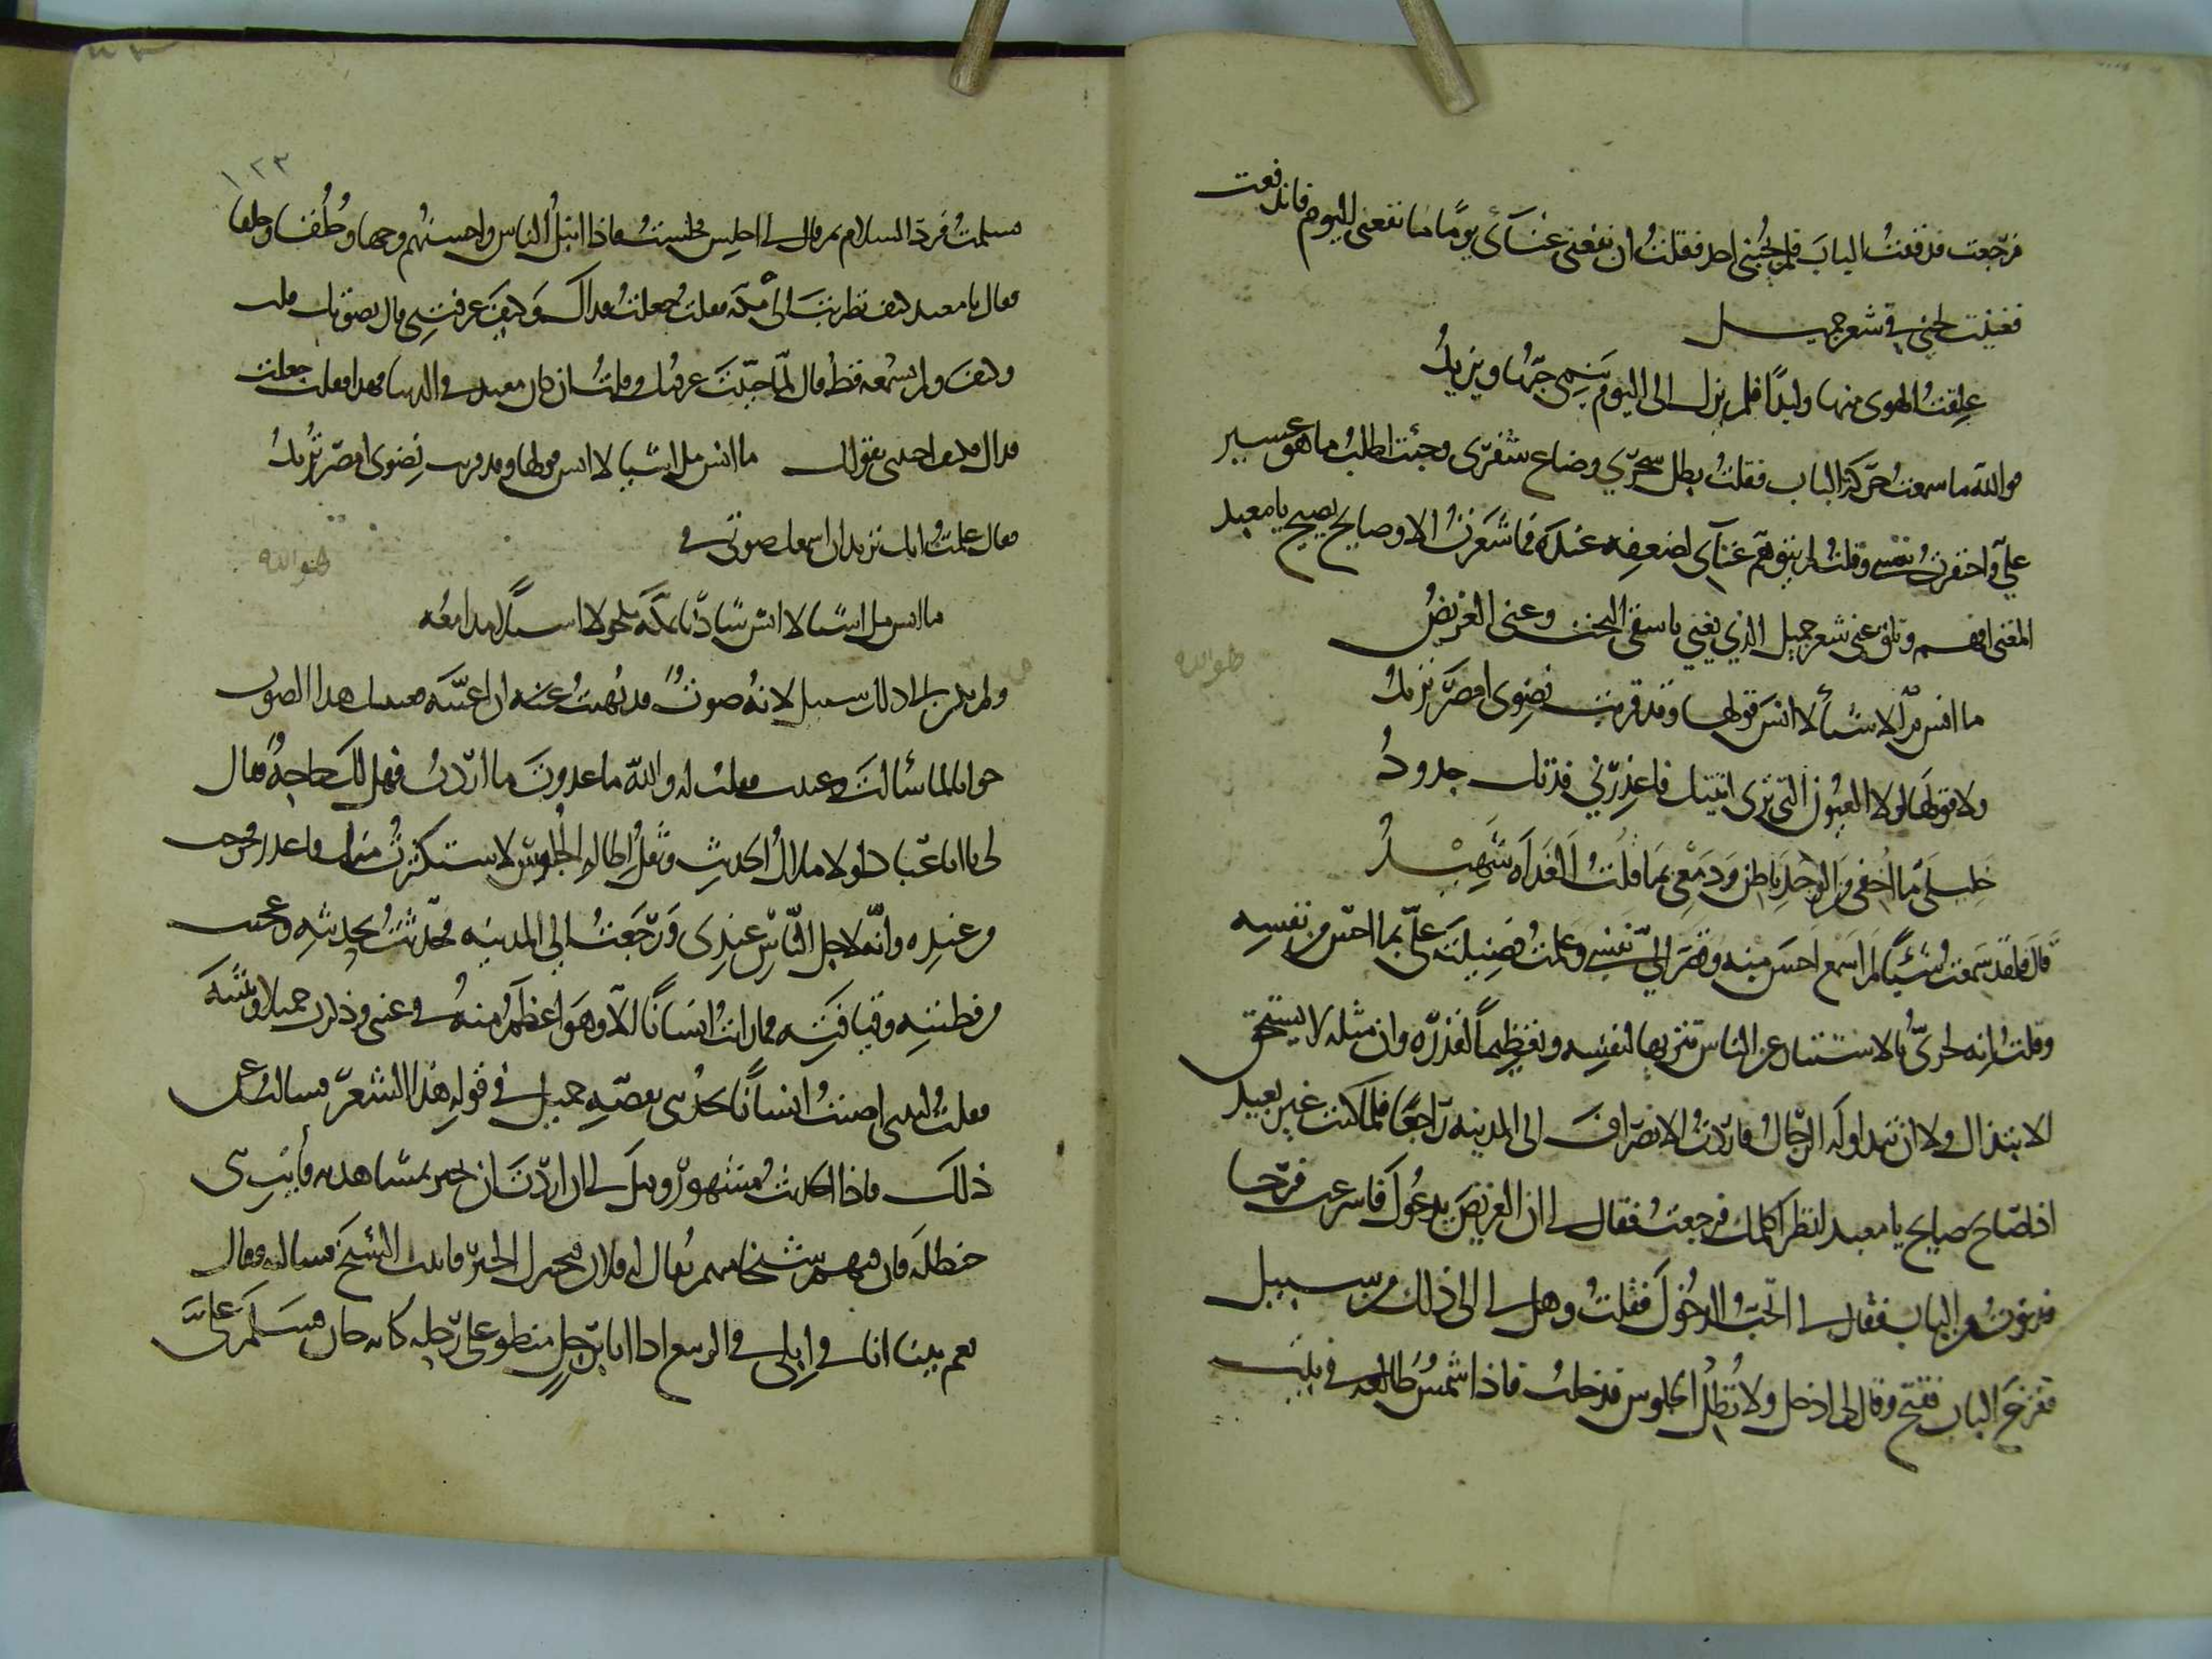 فرجعت فدققت الباب فلم يجبني احد فقلت ان نفعني غنائي يوما ما نفعني اليوم فاندفعت
فغنيت لحني في شعر جميل
علقت الهوى منها وليدا فلم يزل الى اليوم ينمي حبها ويزيد
فوالله ما سمعت حركة الباب فقلت بطل سحري وضاع سفري وجئت اطلب ما هو عسير
علي واحتقرت نفسي وقلت لم يتوهم غنآي لضعفه عنده فما شعرت الا وصايح يصيح يا معبد
المغني افهم وتلق عني شعر جميل الذي يغني يا سقي البخت وغنى الغريض
ما انس ملاشيأ لا انس قولها وقد قربت نضوى امصر تريد
ولا قولها لولا العيون التي ترى اتيتك فاعذرني فدتك جدود
خليلي ما اخفي من الوجد باطن ودمعي بما قلت الغداه شهيد
قال فلقد سمعت شيأ لم اسمع احسن منه وقصر الي نفسي وعلمت فضيلته علي بما احس من نفسه
وقلت انه لحري بالاستتار عن الناس تنزيها لنفسه وتعظيما لقدره وان مثله لا يستحق
الابتذال ولا ان تتداوله الرجال فاردت الانصراف الى المدينه راجعا فلما كنت غير بعيد
اذا صاح صايح يا معبد انتظر اكلمك فرجعت فقال لي ان الغريض يدعوك فاسرعت فرحا
فدنوت من الباب فقال لي اتحب الدخول فقلت وهل لي الى ذلك من سبيل
فقرع الباب ففتح وقال لي ادخل ولا تطل الجلوس فدخلت فاذا شمس طالعه في بيت
١٢٣
فسلمت فرد السلام ثم قال لي اجلس فجلست فاذا انبل الناس واحسنهم وجها وخلقا وخلقا
فقال يا معبد كيف تطربت الى مكه فقلت جعلت فداك وكيف عرفتني قال بصوتك فقلت
وكيف ولم تسمعه قط قال لما غنيت عرفتك وقلت ان كان معبد في الدنيا فهذا فقلت جعلت
فداك فكيف اجبتني بقولك ما انس ملاشيا لا انس قولها وقد قربت نضوى امصر تريد
فقال علمت انك تريد ان اسمعك صوتي في
ما انس ملاشيا لا انس شادنا بمكه مكحولا اسيلا مدامعه
ولم يكن الى ذلك سبيل لانه صوت قد نهيت عنه ان اغنيه فغنيتك هذا الصوت
جوابا لما سألت وغنيت فقلت له والله ما عدوت ما اردت فهل لك حاجة فقال
لي يا ابا عباد لولا ملال الحديث وثقل اطالة الجلوس لاستكثرت منك فاعذر فخرجت
من عنده وانه لاجل الناس عندي ورجعت الى المدينه فحدثت بحديثه وعجبت
من فطنته وقيافته فما رايت انسانا الا وهو اعظم منه في عيني وذكرت جميلا وبثينه
فقلت ليتني اصبت انسانا يحدثني بقصه جميل في قوله هذا الشعر فسالت عن
ذلك فاذا الحديث مشهور وقيل لي ان اردت ان تخبر بمشاهدته فأت بني
حنظله فان فيهم شيخا منهم يقال له فلان يخبرك الخبر فاتيت الشيخ فسالته فقال
نعم بينا انا في ابلي في الربيع اذا انا برجل منطو على رحله كانه جان فسلم علي